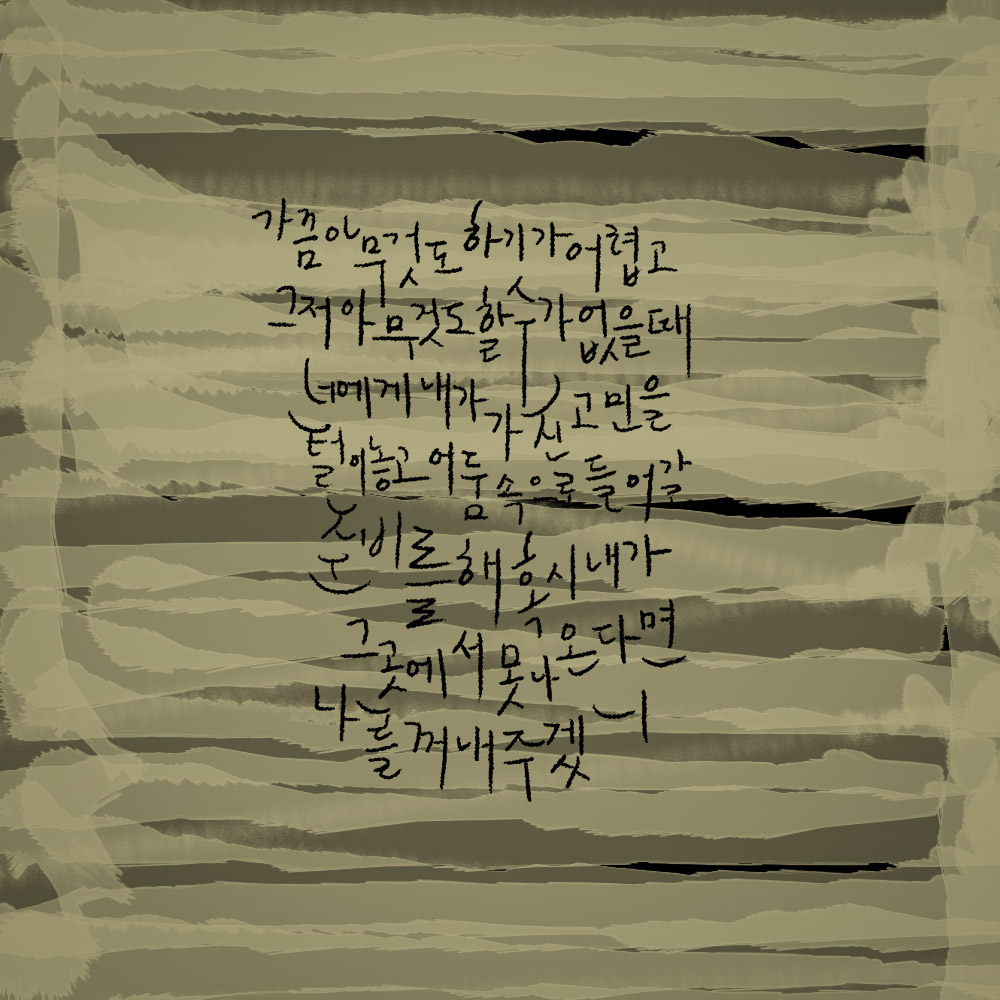 가끔 아무것도 하기가 어렵고
그저 아무것도 할 수가 없을 때
너에게 내가 가진 고민을
털어놓고 어둠 속으로 들어갈
준비를 해 혹시 내가
그곳에서 못 나온다면
나를 꺼내주겠니